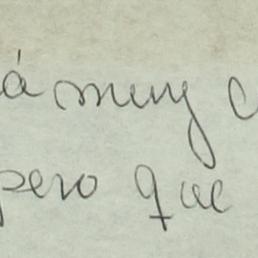 á muy c
pero que